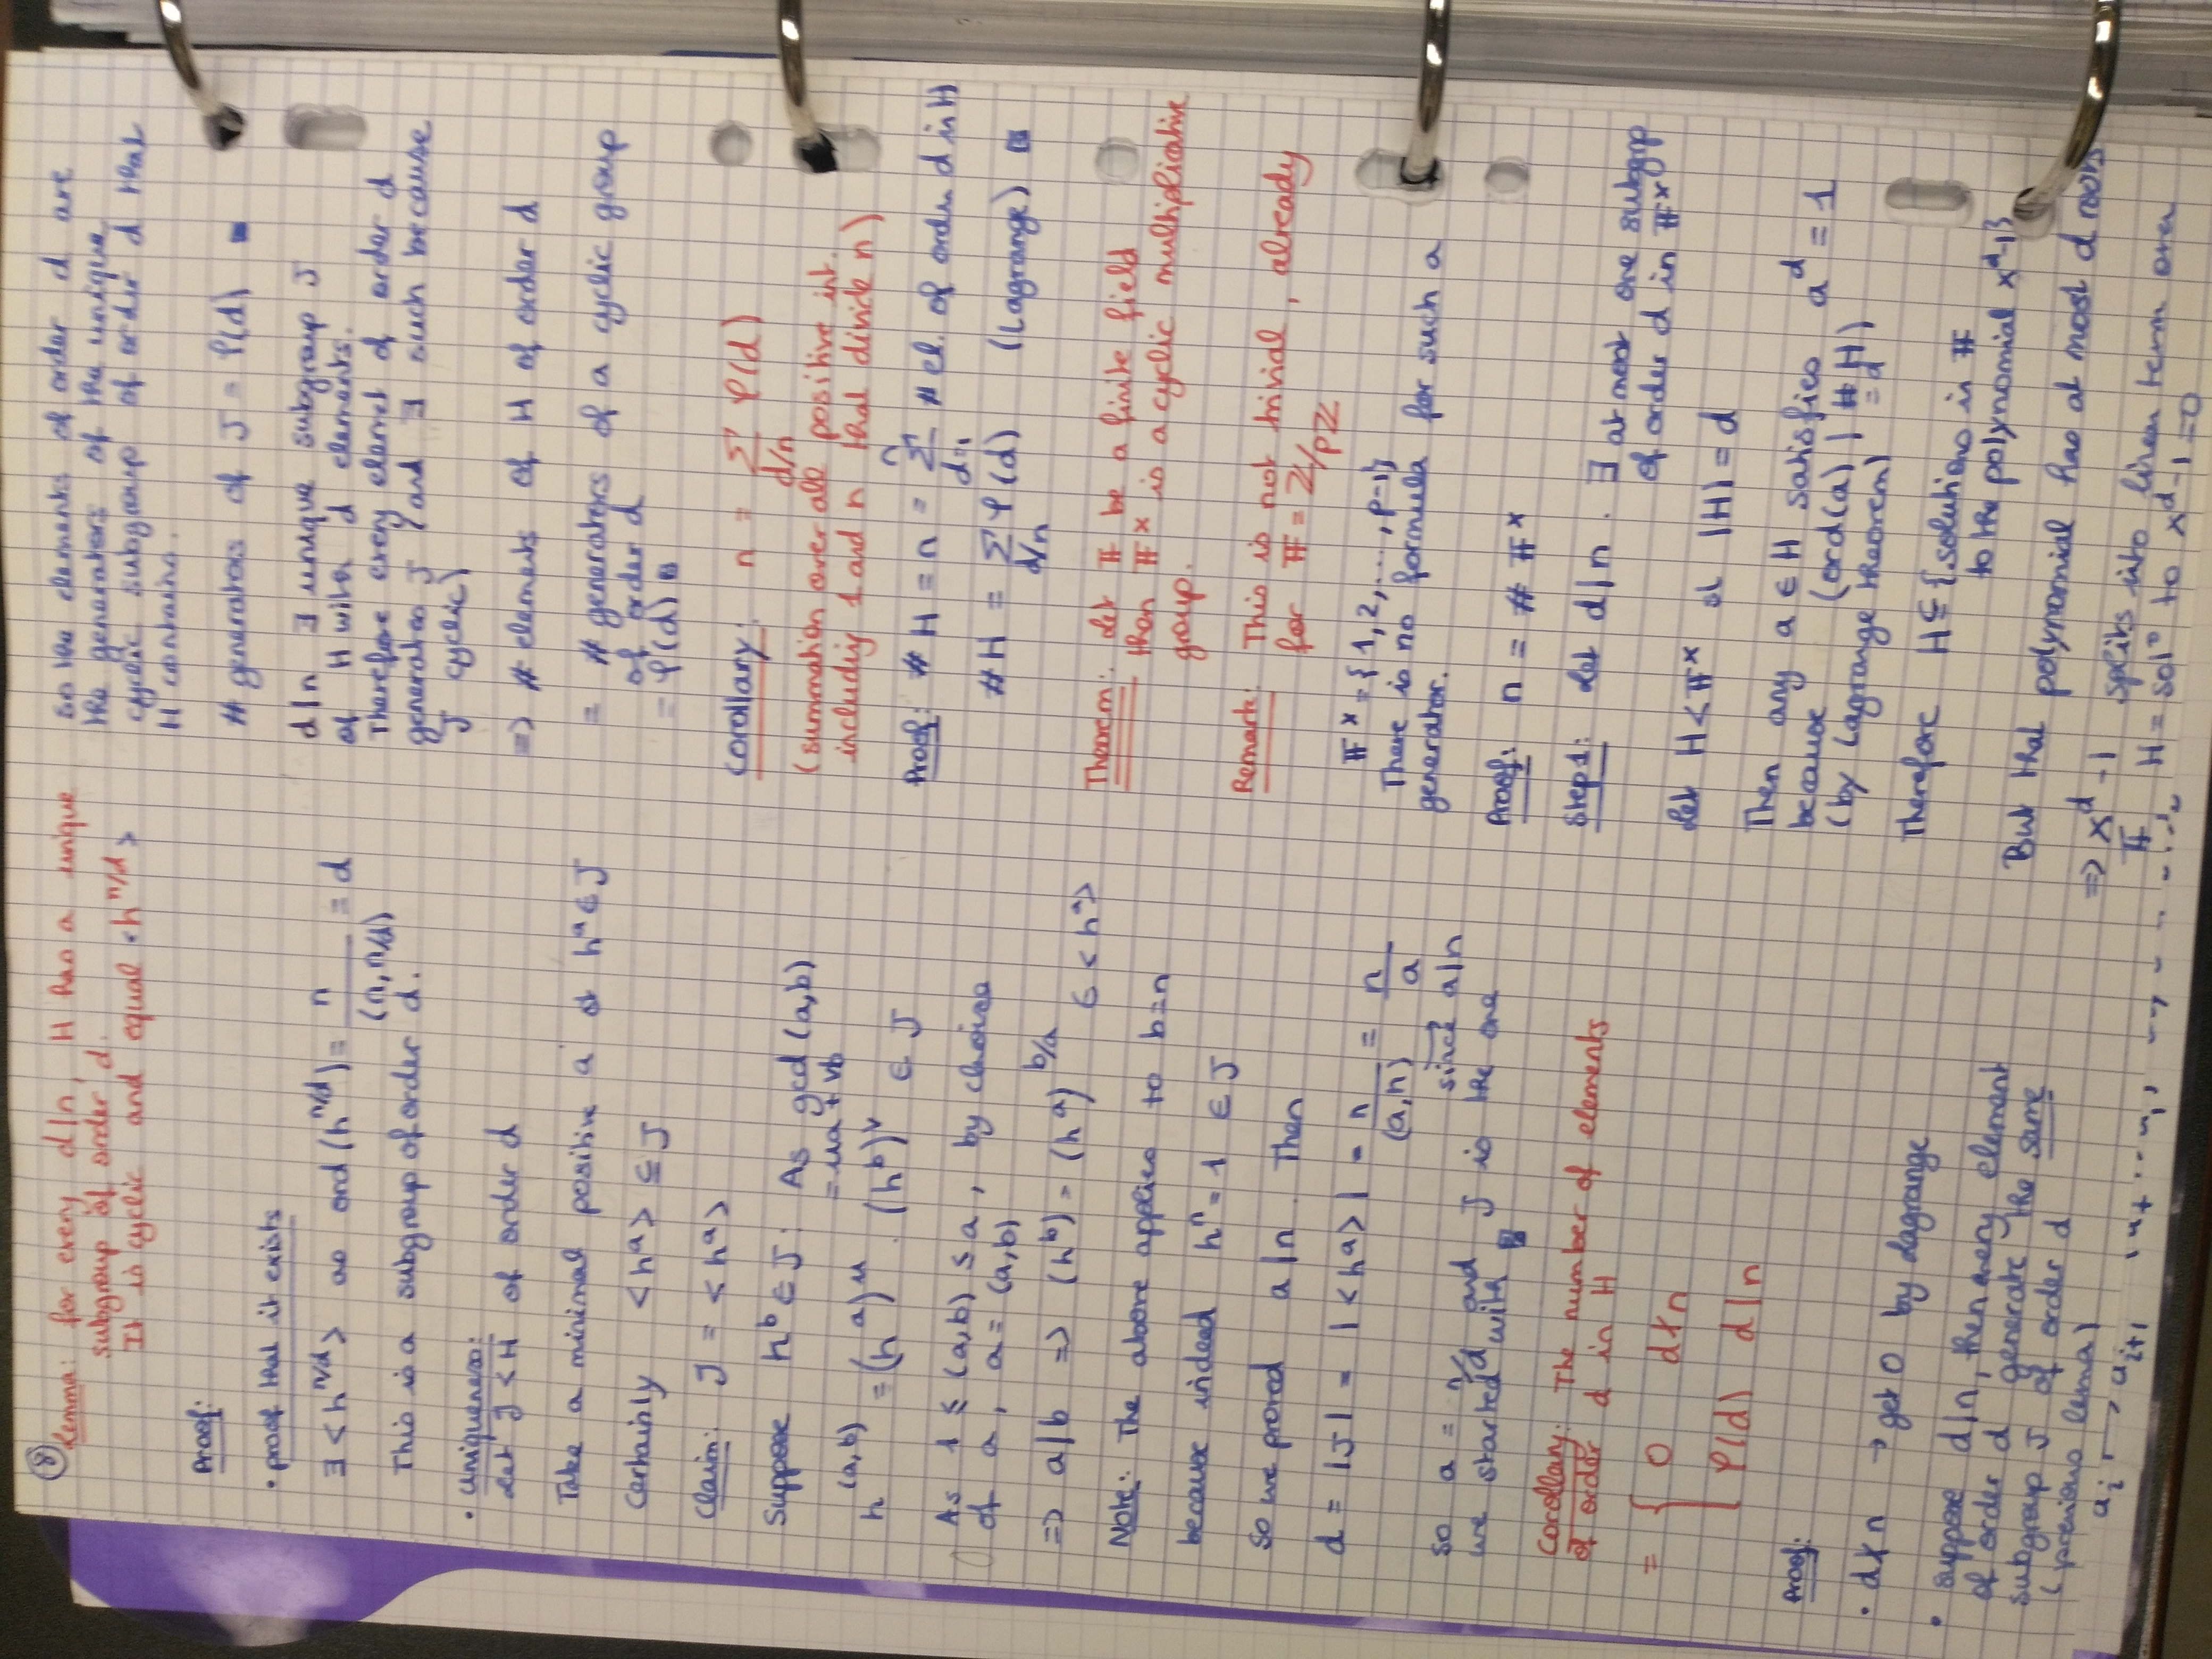 ⑧
Lemma: for every d|n, H has a unique
subgroup of order d.
It is cyclic and equal <h^{n/d}>
Proof:
• proof that it exists
∃ <h^{n/d}> as ord(h^{n/d}) = n/(n, n/d) = d
This is a subgroup of order d.
• Uniqueness:
Let J < H of order d
Take a minimal positive a st h^a ∈ J
Certainly <h^a> ⊆ J
Claim: J = <h^a>
Suppose h^b ∈ J: As gcd(a,b)
= ua + vb
h^{(a,b)} = (h^a)^u . (h^b)^v ∈ J
As 1 ≤ (a,b) ≤ a, by choise
of a, a = (a,b)
=> a|b => (h^b) = (h^a)^{b/a} ∈ <h^a>
Note: The above applies to b=n
because indeed h^n = 1 ∈ J
So we proved a|n. Then
d = |J| = |<h^a>| = n/(a,n) = n/a
since a|n
so a = n/d and J is the one
we started with
Corollary: The number of elements
of order d in H
= { 0 d∤n
φ(d) d|n
Proof:
• d∤n → get 0 by Lagrange
• suppose d|n, then every element
of order d generate the same
subgroup J of order d
(previous lema)
so the elements of order d are
the generators of the unique
cyclic subgroup of order d that
H contains.
# generators of J = φ(d) ■
d|n ∃ unique subgroup J
of H with d elements.
Therefore every elemt of order d
generates J (and ∃ such because
J cyclic)
=> # elements of H of order d
= # generators of a cyclic group
of order d
= φ(d)
Corollary: n = Σ_{d|n} φ(d)
(summation over all positive int.
including 1 and n that divide n)
Proof: # H = n = Σ_{d=1}^{n} # el. of order d in H
# H = Σ_{d|n} φ(d) (Lagrange)
Theorem: Let 𝔽 be a finite field
then 𝔽^× is a cyclic multiplicative
group.
Remark: This is not trivial, already
for 𝔽 = ℤ/pℤ
𝔽^× = {1,2,...,p-1}
There is no formula for such a
generator.
Proof: n = # 𝔽^×
Step1: Let d|n. ∃ at most one subgrp
of order d in 𝔽^×
Let H < 𝔽^× st |H| = d
Then any a ∈ H satisfies a^d = 1
because (ord(a) | #H)
= d
(by Lagrange theorem)
Therefore H ⊆ {solutions in 𝔽
to the polynomial x^d-1}
But that polynomial has at most d roots
=> x^d - 1 splits into linear term over
𝔽 H = sol° to x^d - 1 = 0